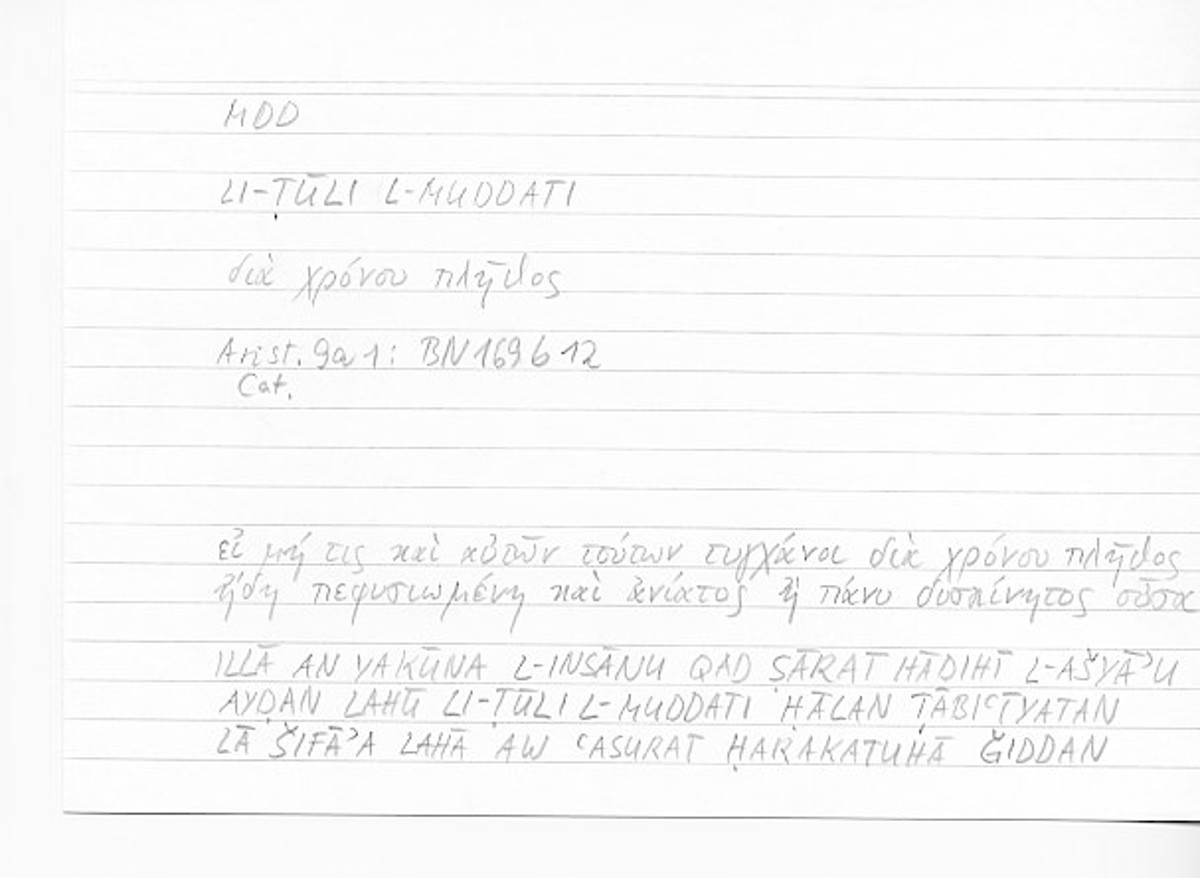 MDD
LI-ṬŪLI L-MUDDATI
διὰ χρόνου πλῆθος
Arist. 9a1: BN 169 b 12
Cat.
εἰ μή τις καὶ αὐτῶν τούτων τυγχάνοι διὰ χρόνου πλῆθος
ἤδη πεφυσιωμένη καὶ ἀνίατος ἢ πάνυ δυσκίνητος οὖσα
ILLĀ AN YAKŪNA L-INSĀNU QAD ṢĀRAT HĀḎIHĪ L-AŠYĀʾU
AYḌAN LAHŪ LI-ṬŪLI L-MUDDATI ḤĀLAN ṬĀBIʿĪYATAN
LĀ ŠIFĀʾA LAHĀ AW ʿASURAT ḤARAKATUHĀ ǦIDDAN